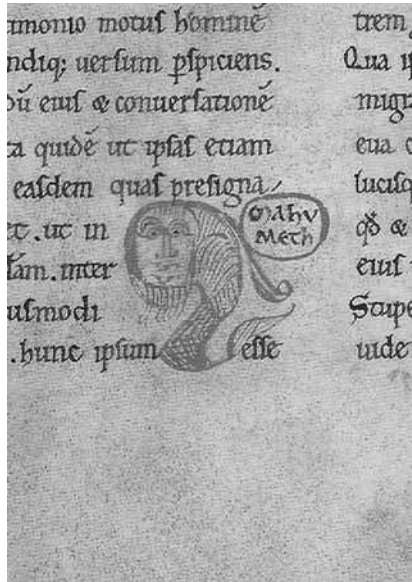 imonio motuſ hominē
ndiq; uerſum ꝑſpiciens.
eiuſ & conuerſationē
ta quidē ut ipſaſ etiam
eaſdem quaſ preſigna
et. ut in
ſam. inter
uſmodi
. hunc ipſum eſſe
Mahu
meth
trem
Qua
migr
eua
luciſq
qđ &
eiuſ
Stupe
uide